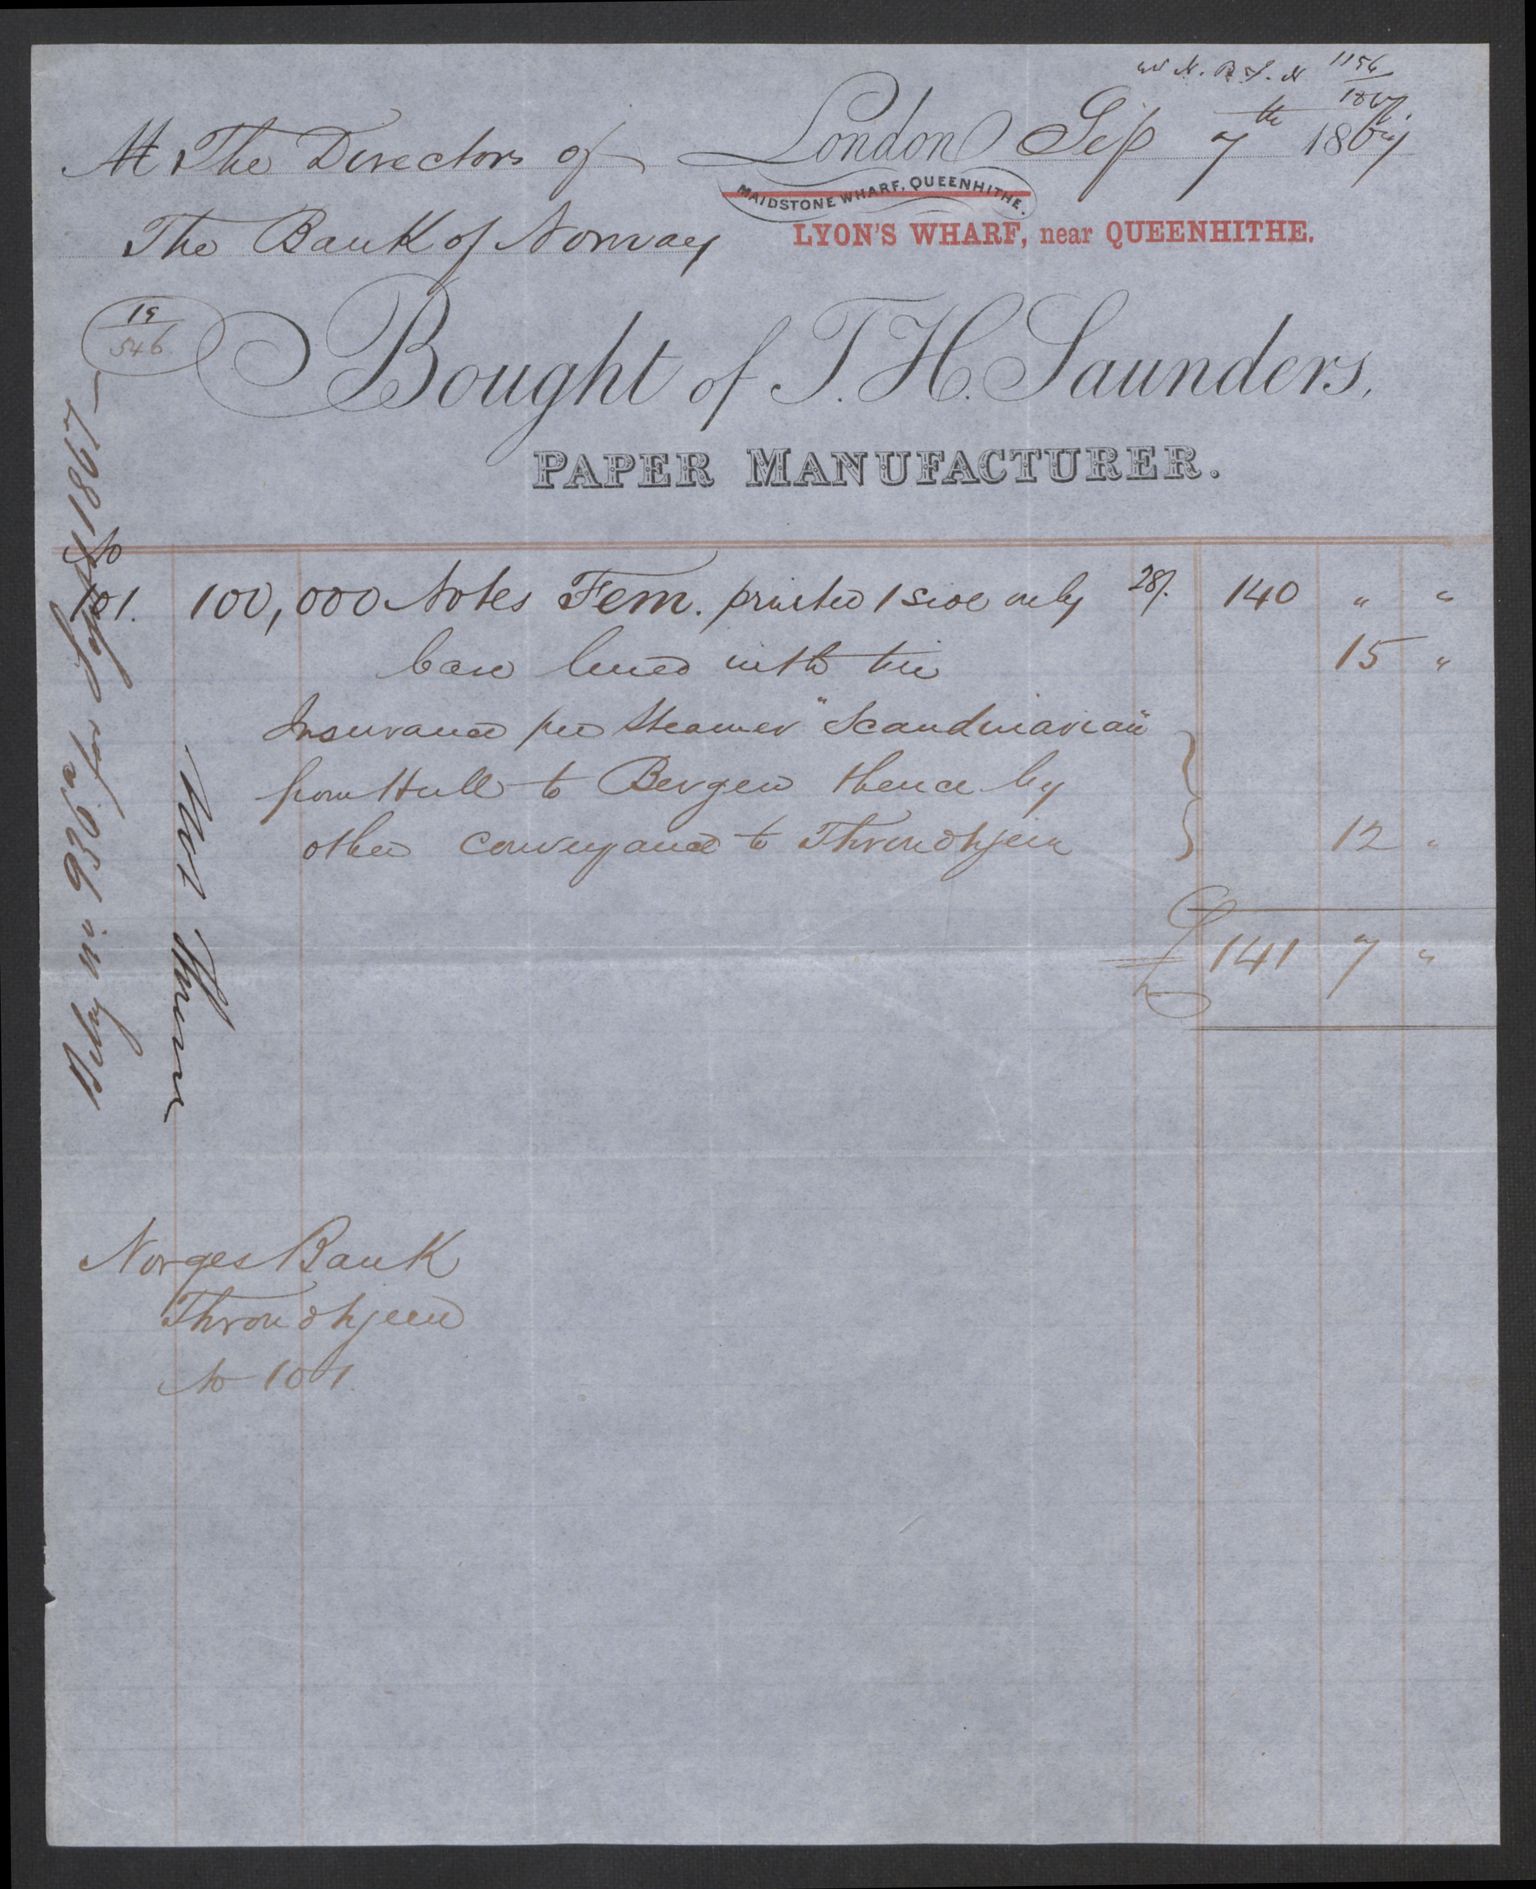 N. B. J. N 1156/1867.
London Sep 7th 1867
M The Directors of
MAIDSTONE WHARF, QUEENHITHE.
The Bank of Norway
LYON'S WHARF, near QUEENHITHE.
19/546
Bought of T. H. Saunders,
PAPER MANUFACTURER.
No
101. 100,000 Notes Fem. printed 1 side only 28/. 140 " "
case lined with tin 15 "
Insurance per Steamer "Scandinavian"
from Hull to Bergen thence by
other conveyance to Throndhjem 12 "
£ 141 7 "
Bilag No 936a for Septbr 1867
Norges Bank
Throndhjem
No 101.